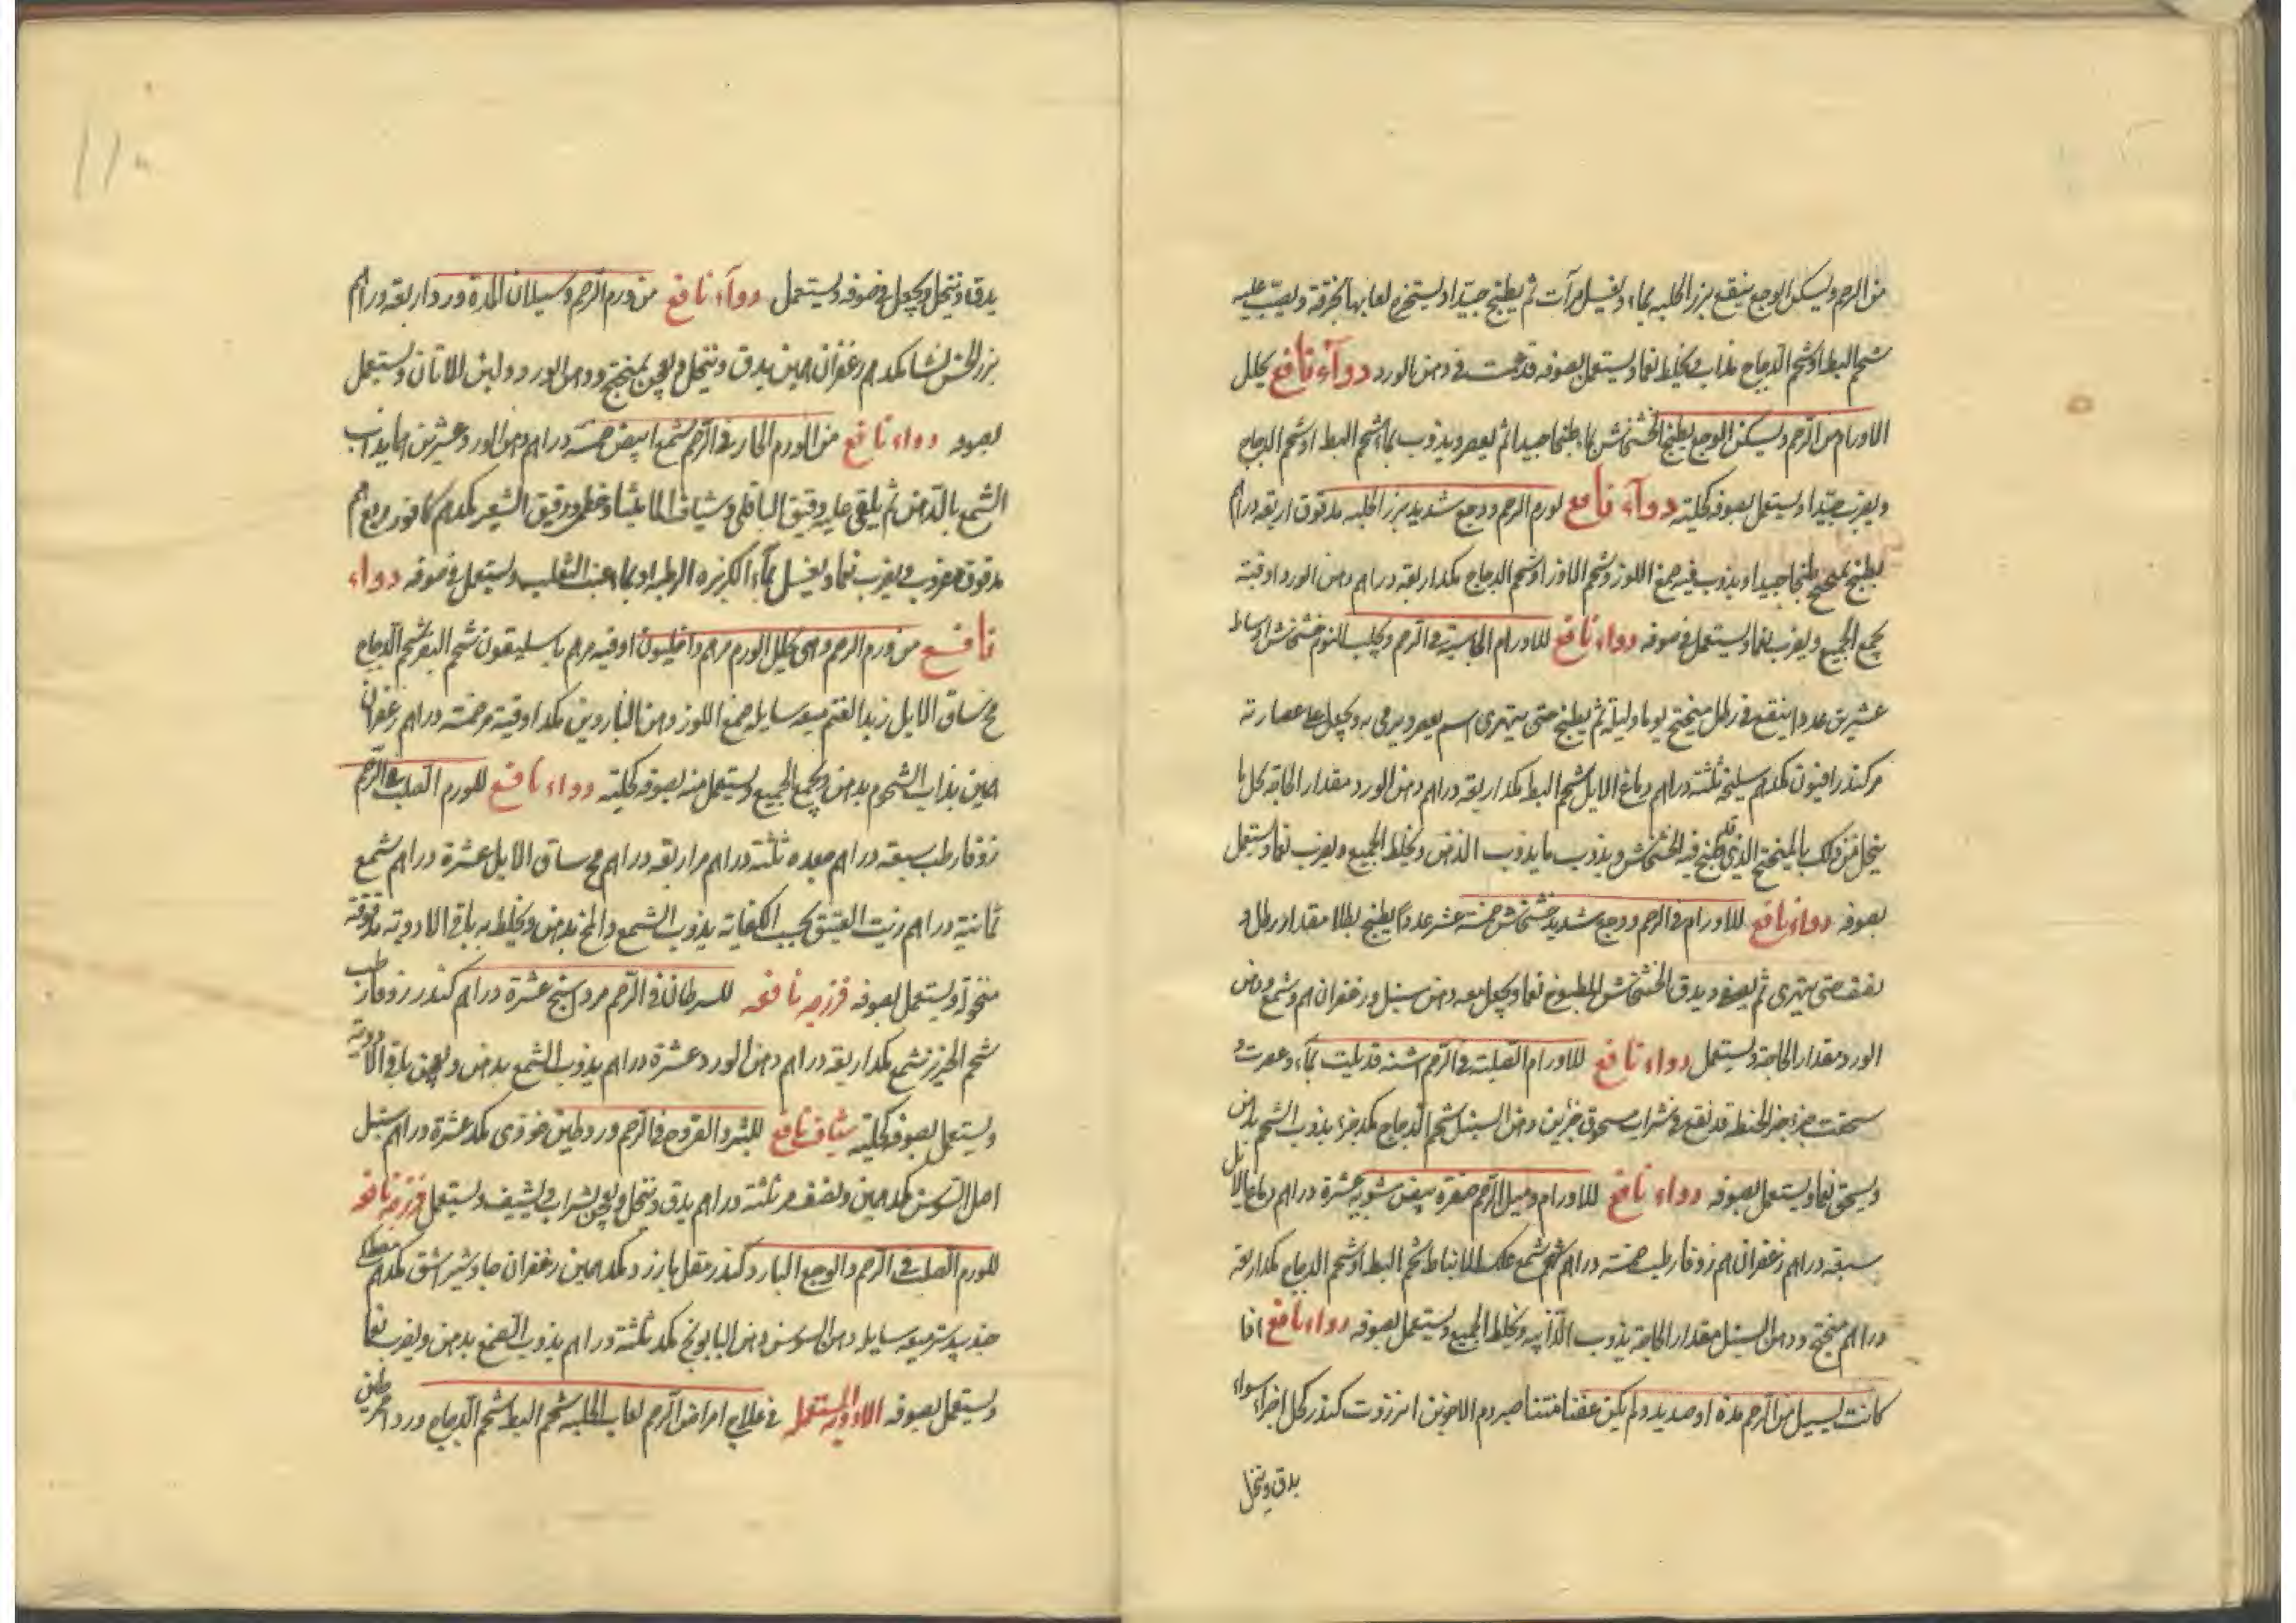 من الرحم ويسكن الوجع ينقع بزر الحلبه بماء ويغسل مرآت ثم يطبخ جيدا ويستخرج لعابها بخرقة ويصب عليه
شحم البط او شحم الدجاج مذاب ويخلط نعما ويستعمل بصوفه قد غمست في دهن الورد دوآء نافع يحلل
الاورام من الرحم ويسكن الوجع يطبخ الخشخاش بماء طبخا جيدا ثم يعصر ويذوب بماء شحم البط او شحم الدجاج
ويضرب جيدا ويستعمل بصوفه كليته دوآء نافع لورم الرحم ووجع شديد بزر الحلبه مدقوق اربعة دراهم
يطبخ بمبختج طبخا جيدا ويذوب فيه صمغ اللوز وشحم الاوز او شحم الدجاج مكد اربعة دراهم دهن الورد اوقية
يجمع الجميع ويضرب نعما ويستعمل في صوفه دواء نافع للاورام الجاسية في الرحم ويجلب النوم خشخاش اوساط
عشرين عددا ينقع في رطل مبختج يوما وليلة ثم يطبخ حتى يتهرى ثم يعصر ويرمى به ويجعل على عصارته
مر كندر افيون مكد سليخه ثلثة دراهم دماغ الايل شحم البط مكد اربعة دراهم دهن الورد مقدار الحاجة حل ما
ينحل من ذلك بالمبختج الذي قد طبخ فيه الخشخاش ويذوب ما يذوب الدهن ويخلط الجميع ويضرب نعما ويستعمل
بصوفه دواء نافع للاورام في الرحم ووجع شديد خشخاش خمسة عشر عددا يطبخ بطلا مقدار رطل و
نصف حتى يتهرى ثم يصفى ويدق الخشخاش المطبوخ نعما ويجعل معه دهن سنبل وزعفران اهم وشمع ودهن
الورد مقدار الحاجة ويستعمل دواء نافع للاورام الصلبة في الرحم اشنه قد بلت بماء وعصرت و
سحقت جزء خبز الحنطة قد نقع في شراب مسحوق جزئين دهن السنبل شحم الدجاج مكد جزء يذوب الشحم بدهن
ويسحق نعما ويستعمل بصوفه دواء نافع للاورام وميل الرحم صفرة بيض مشويه عشرة دراهم دماغ الايل
سبعة دراهم زعفران اهم زوفا رطب خمسة دراهم شمع علك الانباط شحم البط او شحم الدجاج مكد اربعة
دراهم مبختج ودهن السنبل مقدار الحاجة يذوب الذائبه ويخلط الجميع ويستعمل بصوفه دواء نافع اذا
كانت يسيل من الرحم مده او صديد ولم يكن عفنا منتنا صبر دم الاخوين انزروت كندر كل اجزاء سواء
يدق وينخل
يدق وينخل ويجعل في صوفه ويستعمل دوآء نافع من ورم الرحم وسيلان المادة ورد اربعة دراهم
بزر الخس نشا مكد اهم زعفران دهمين يدق وينخل ويعجن بمبختج ودهن الورد ولبن الاتان ويستعمل
بصوفه دواء نافع من الورم الحار في الرحم شمع ابيض خمسة دراهم دهن الورد وعشرين دهما يذاب
الشمع بالدهن ثم يلقى عليه دقيق الباقلى وشياف الماميثا وخطمى ودقيق الشعير مكد اهم كافور ربع اهم
مدقوق مضروب ويضرب نعما ويغسل بماء الكزبره الرطبه او بماء عنب الثعلب ويستعمل في صوفه دواء
نافع من ورم الرحم وهى يحلل الورم مرهم داخليون اوقيه مرهم باسليقون شحم البقر شحم الدجاج
مخ ساق الايل زبد الغنم ميعه سايله صمغ اللوز دهن الناردين مكد اوقية مر خمسة دراهم زعفران
دهمين يذاب الشحوم بدهن ويجمع الجميع ويستعمل منه بصوفه كليته دواء نافع للورم الصلب في الرحم
زوفا رطب سبعة دراهم ميعه ثلثة دراهم مر اربعة دراهم مخ ساق الايل عشرة دراهم شمع
ثمانية دراهم زيت العتيق بحسب الكفاية يذوب الشمع والمخ بدهن ويخلط به باقى الادوية مدقوقة
منخولة ويستعمل بصوفه فرزجه نافعه للسرطان في الرحم مرداسنج عشرة دراهم كندر زوفا رطب
شحم الخنزير شمع مكد اربعة دراهم دهن الورد عشرة دراهم يذوب الشمع بدهن ويعجن باقى الادوية
ويستعمل بصوفه كليته شياف نافع للبثر والقروح في الرحم ورد طين خوزى مكد عشرة دراهم سنبل
اصل السوسن مكد دهمين ونصف مر ثلثة دراهم يدق وينخل ويعجن بشراب ويشيف ويستعمل فرزجه نافعه
للورم الصلب في الرحم والوجع البارد كندر مقل بارزد مكد دهمين زعفران جاوشير اشق مكد اهم مصطكى
جندبيدستر ميعه سايله دهن السوسن دهن البابونج مكد ثلثة دراهم يذوب الصمغ بدهن ويضرب نعما
ويستعمل بصوفه الادوية المستعمله في علاج امراض الرحم لعاب الحلبه شحم البط شحم الدجاج ورد احمر طين